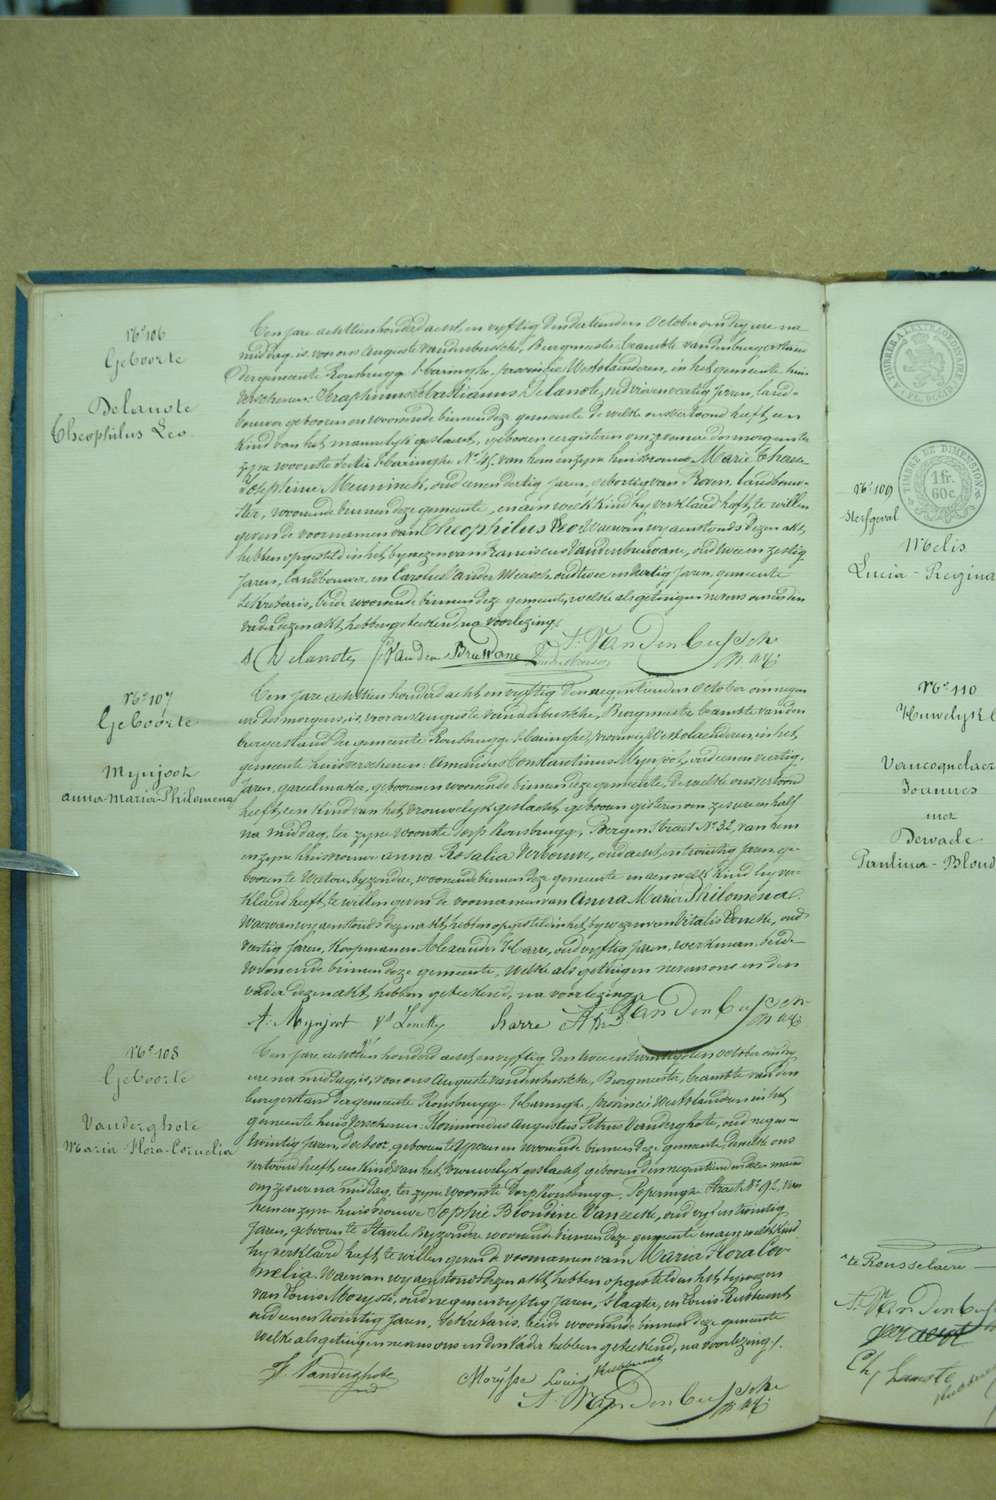 N° 106
Geboorte
Delanote
Theophilus Leo
Een jare achttien honderd acht en vyftig den dertienden October om dry ure na
middag, is voor ons Auguste Vandenbussche, Burgmeester, beambte van den burgerstand
der gemeente Rousbrugge Haringhe, provintie Westvlaenderen, in het gemeente huis
verschenen Seraphinus Sebastianus Delanote, oud vier en veertig jaren, land-
bouwer geboren en woonende binnen deze gemeente de welke ons vertoond heeft, een
kind van het mannelyk geslacht, geboren eergisteren om zes uren des morgens te
zyne woonste sectie Haringhe N° 45, van hem en zyne huisvrouw Marie Therese
Josephine Meuninck, oud een en dertig jaren, geboortig van Proven, landbouw-
ster, woonende binnen deze gemeente, en aen welk kind hy verklaerd heeft, te willen
geven de voornamen van Theophilus Leo Waervan wy aenstonds dezen akt,
hebben opgesteld in het bywezen van Franciscus Vandenbruwane, oud twee en zestig
Jaren, landbouwer, en Carolus Vander Meersch, oud twee en dertig Jaren, gemeente
Sekretaris, beide woonende binnen deze gemeente, welke als getuigen nevens ons en den
vader dezen akt, hebben geteekend, na voorlezing.
S Delanote Vanden Bruwane A. VandenBussche
N° 107
Geboorte
Mynjoot
anna-Maria-Philomena
Een jare achttien honderd acht en vyftig den negentienden October om negen
ure des morgens, is voor ons Auguste Vandenbussche, Burgmeester, beambte van den
burgerstand der gemeente Rousbrugge Haringhe, provincie Westvlaenderen, in het
gemeente huis verschenen Amandus Constantinus Mynjoot, oud een en veertig
Jaren, gareelmaker, geboren en woonende binnen deze gemeente, de welke ons vertoond
heeft, een kind van het vrouwelyk geslacht, geboren gisteren om zes ure en half
na middag, ter zyne woonste Dorp Rousbrugge, Bergen Straet N° 32, van hem
en zyne Huisvrouw Anna Rosalia Verbouw, oud acht en twintig Jaren, ge-
boren te Watou, byzondre, woonende binnen deze gemeente en aen welk kind hy ver-
klaerd heeft, te willen geven de voornamen van Anna Maria Philomena.
Waervan wy aenstonds dezen akt hebben opgesteld in het bywezen van Vitalis Leneke, oud
veertig Jaren, Koopman en Alexander Harre, oud vyftig Jaren, werkman, beide
woonende binnen deze gemeente, welke als getuigen nevens ons en den
vader dezen akt, hebben geteekend, na voorlezing.
A. Mynjoot Harre A. VandenBussche
N° 108
Geboorte
Vanderghote
Maria-Flora-Cornelia
Een jare achttien honderd acht en vyftig den twee en twintigsten october om dry
ure na middag, is, voor ons Auguste Vandenbussche, Burgmeester, beambte van den
burgerstand der gemeente Rousbrugge Haringhe, provincie Westvlaenderen in het
gemeente huis verschenen Florimondus Augustus Petrus Vanderghote, oud negen en
twintig Jaren, doctoor, geboren te Yperen en woonende binnen deze gemeente, dewelke ons
vertoond heeft, een kind van het vrouwelyk geslacht, geboren den negentienden dezer maend
om zes ure na middag, ter zyne woonste Dorp Rousbrugge, Poperinghe Straet N° 92, van
hem en zyne huisvrouw Sophie Blondine Vaneecke, oud vyf en twintig
Jaren, geboren te Stavele Byzondre woonende binnen deze gemeente en aen welk kind
hy verklaerd heeft, te willen geven de voornamen van Maria Flora Cor-
nelia. Waervan wy aenstonds dezen akt, hebben opgesteld in het bywezen
van Louis Morysse, oud negen en vyftig Jaren, Slagter, en Louis
oud een en twintig Jaren, Sekretaris, beide woonende binnen deze gemeente
welke als getuigen nevens ons en den Vader hebben geteekend, na voorlezing.
F. Vanderghote Morysse Louis
A. VandenBussche
TIMBRE A L'EXTRAORDINAIRE
TIMBRE DE DIMENSION
1 fr.
60 c.
N° 109
Sterfgeval
Melis
Lucia-Regina
N° 110
Huwelyk
Vancoquelaer
Joannes
met
Dewade
Paulina-Blond
te Rousselaere
A. VandenBu